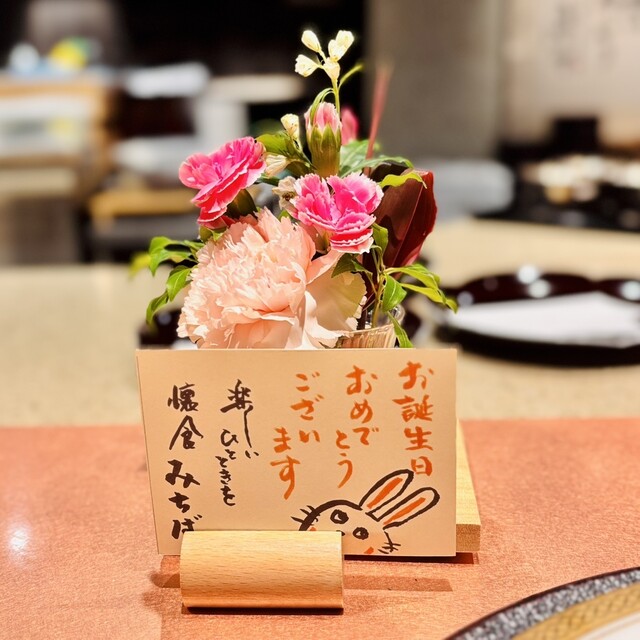 お誕生日
おめでとう
ございます
楽しい
ひとときを
懐食みちば